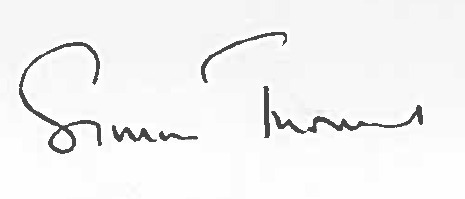 Simon Thomas